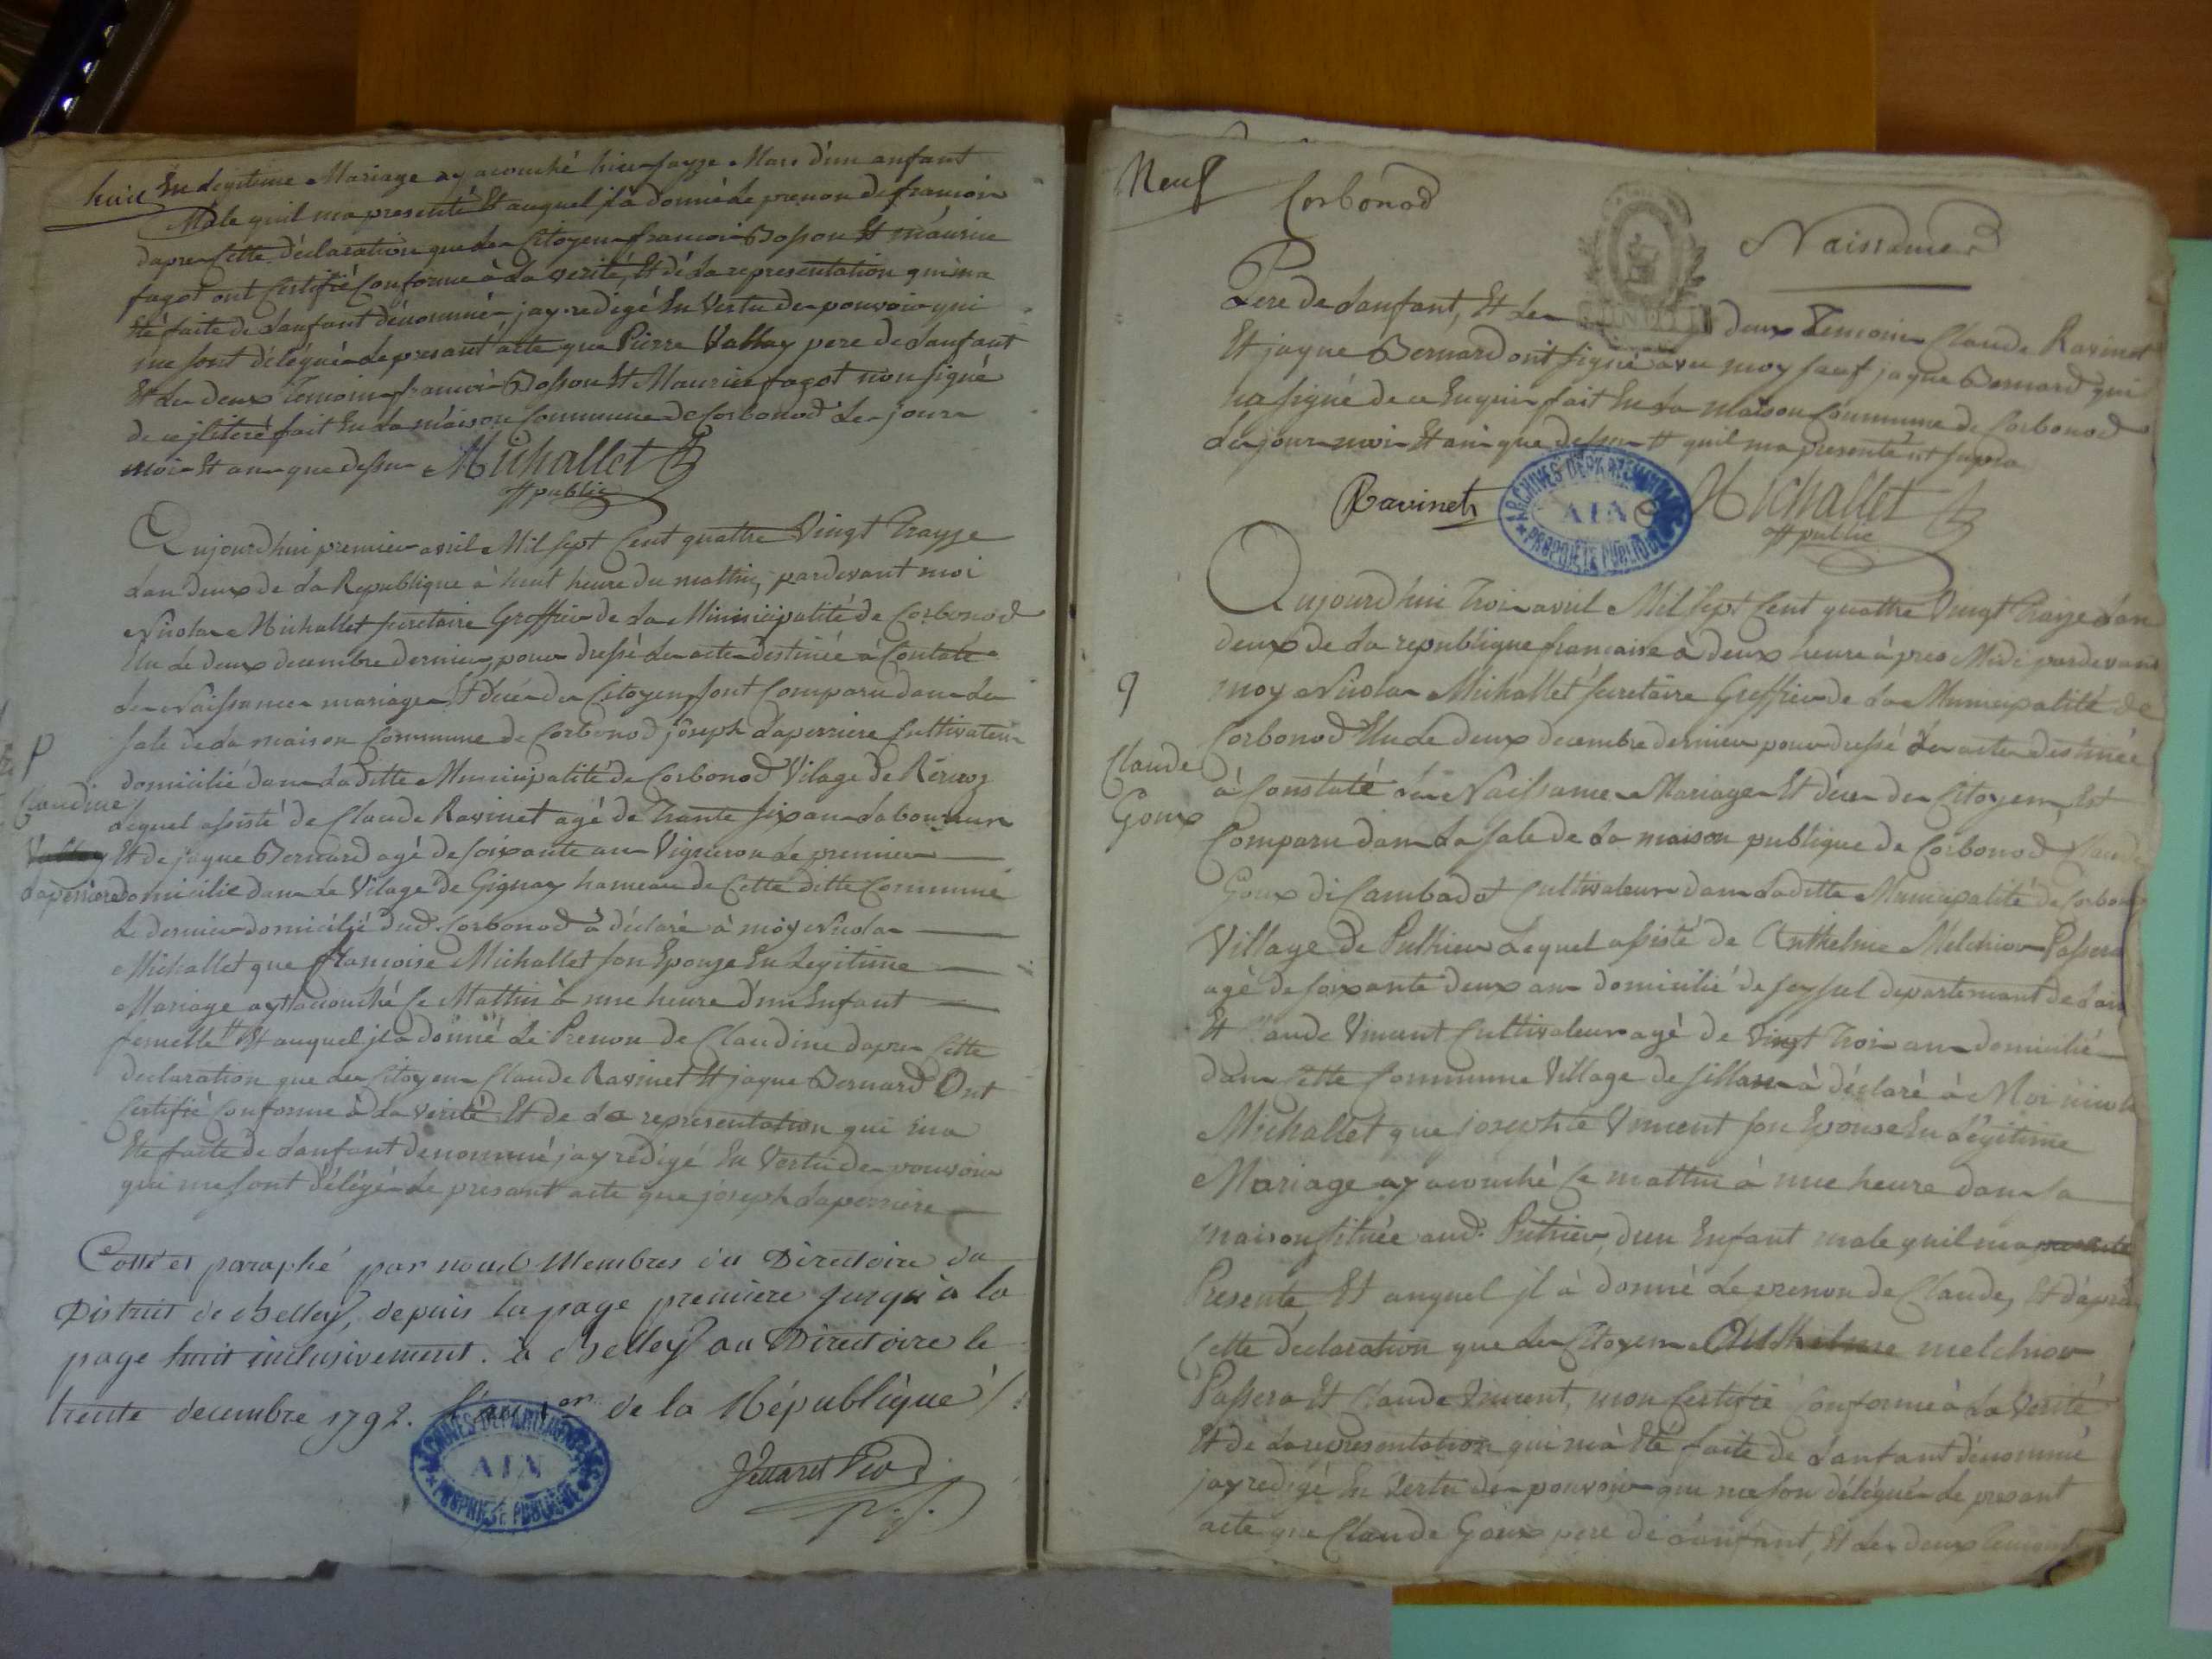 huit
En legitime Mariage ay acouché hier sayze Mars d'un anfant
Male quil ma presenté Et auquel jl à donné Le prenon de francois
dapres Cette déclaration que Les Citoyens francois Bosson Et maurice
fagot ont Certifié Conforme à La verité, Et dè La representation qui ma
Eté faite de Lanfant dénommé jay redigé En Vertu des pouvoirs qui
me sont délégués Le presant acte que Pierre Vallay pere de Lanfant
Et Les deux Temoins francois Bosson Et Maurice fagot non signé
de ce fait En La maison Commune de Corbonod Les jours
mois Et ans que dessus Michallet
off public
Aujourdhui premier avril Mil sept Cent quattre Vingt Trayze
Lan deux de La Republique à heure du mattin, pardevant moi
Nicolas Michallet secretaire Greffier de La Municipalité de Corbonod
Elu Le deux decembre dernier, pour dressé Les actes destinée à
Les Naissances mariages Et décés des Citoyens, sont Comparu dans La
sale de La maison Commune de Corbonod joseph Laperriere Cultivateur
domicilié dans Laditte Municipalité de Corbonod Vilage de
p
Claudine
Vallay
Laperriere
Lequel assisté de Claude Ravinet agé de Trante six ans Laboureur
Et de jaque Bernard agé de soixante ans Vigneron Le premier
domicilié dans Le Vilage de Gignay hameau de Cette ditte Commune
Le dernier domicilié dud. Corbonod à déclaré à moy Nicolas
Michallet que francoise Michallet son Epouze En Legitime
Mariage ayt acouché Ce Mattin à une heure d'un Enfant
femelle Et auquel jl a donné Le Prenon de Claudine dapres Cette
declaration que Les Citoyens Claude Ravinet Et jaque Bernard Ont
Certifié Conforme à La verité Et de La representation qui ma
Eté faite de Lanfant denommé jay redigé En Vertu des pouvoirs
qui me sont délégés Le presant acte que joseph Laperriere
Cotté et paraphé par nous Membres du Directoire du
District de Belley, depuis la page premiere jusqu'à la
page huit inclusivement. à Belley au Directoire le
trente decembre 1792. L'an 1er de la République
ARCHIVES DÉPARTEMENTALES
AIN
PROPRIÉTÉ PUBLIQUE
Neuf
Corbonod
Naissances
Pere de Lanfant, Et Les deux Temoins Claude Ravinet
Et jaque Bernard ont signé avec moy sauf jaque Bernard qui
na signé de ce Enquis fait En La maison Commune de Corbonod
Les jours mois Et ans que dessus Et quil ma presenté
Ravinet
ARCHIVES DÉPARTEMENTALES
AIN
PROPRIÉTÉ PUBLIQUE
Michallet
off public
Aujourdhui Trois avril Mil sept Cent quattre Vingt Traize Lan
deux de La republique francaise à deux heure àpres Midi pardevant
9
moy Nicolas Michallet secretaire Greffier de La Municipalité de
Corbonod Elu Le deux decembre dernier pour dressé Les actes destinée
Claude
Goux
à Constaté Les Naissances Mariages Et décés des Citoyens, Est
Comparu dans La sale de La maison publique de Corbonod Claude
Goux di Cambadot Cultivateur dans Laditte Municipalité de Corbonod
Village de Puthier Lequel assisté de Anthelme Melchior Passera
agé de soixante deux ans domicilié de seyssel departemant de Lain
Et Claude Vincent Cultivateur agé de vingt Trois ans domicilié
dans Cette Commune Village de sillans à déclaré à Moi nicolas
Michallet que josephte Vincent son Epouse En Légitime
Mariage ay acouché Ce mattin à une heure dans sa
maison située aud. Puthier, dun Enfant male quil ma presenté
Presenté Et auquel jl à donné Le prenon de Claude, Et dapres
Cette declaration que Les Citoyens Anthelme melchior
Passera Et Claude Vincent, mon Certifié Conforme à La Verité
Et de La representation qui ma Eté faite de Lanfant dénommé
jay redigé En Vertu des pouvoirs qui me son délégués Le presant
acte que Claude Goux pere de Lanfant, Et Les deux Temoins